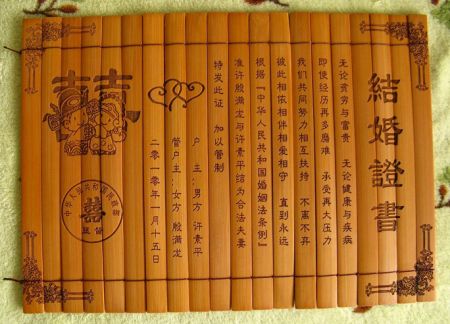 結婚證書
无论贫穷与富贵 无论健康与疾病
即使经历再多磨难 承受再大压力
我们共同努力相互扶持 不离不弃
彼此相依相伴相爱相守 直到永远
根据『中华人民共和国婚姻法条例』
准许殷满龙与许素平结为合法夫妻
特发此证 加以管制
户 主：男方 许素平
管户主：女方 殷满龙
二零一零年一月十五日
囍
中华人民共和国
囍